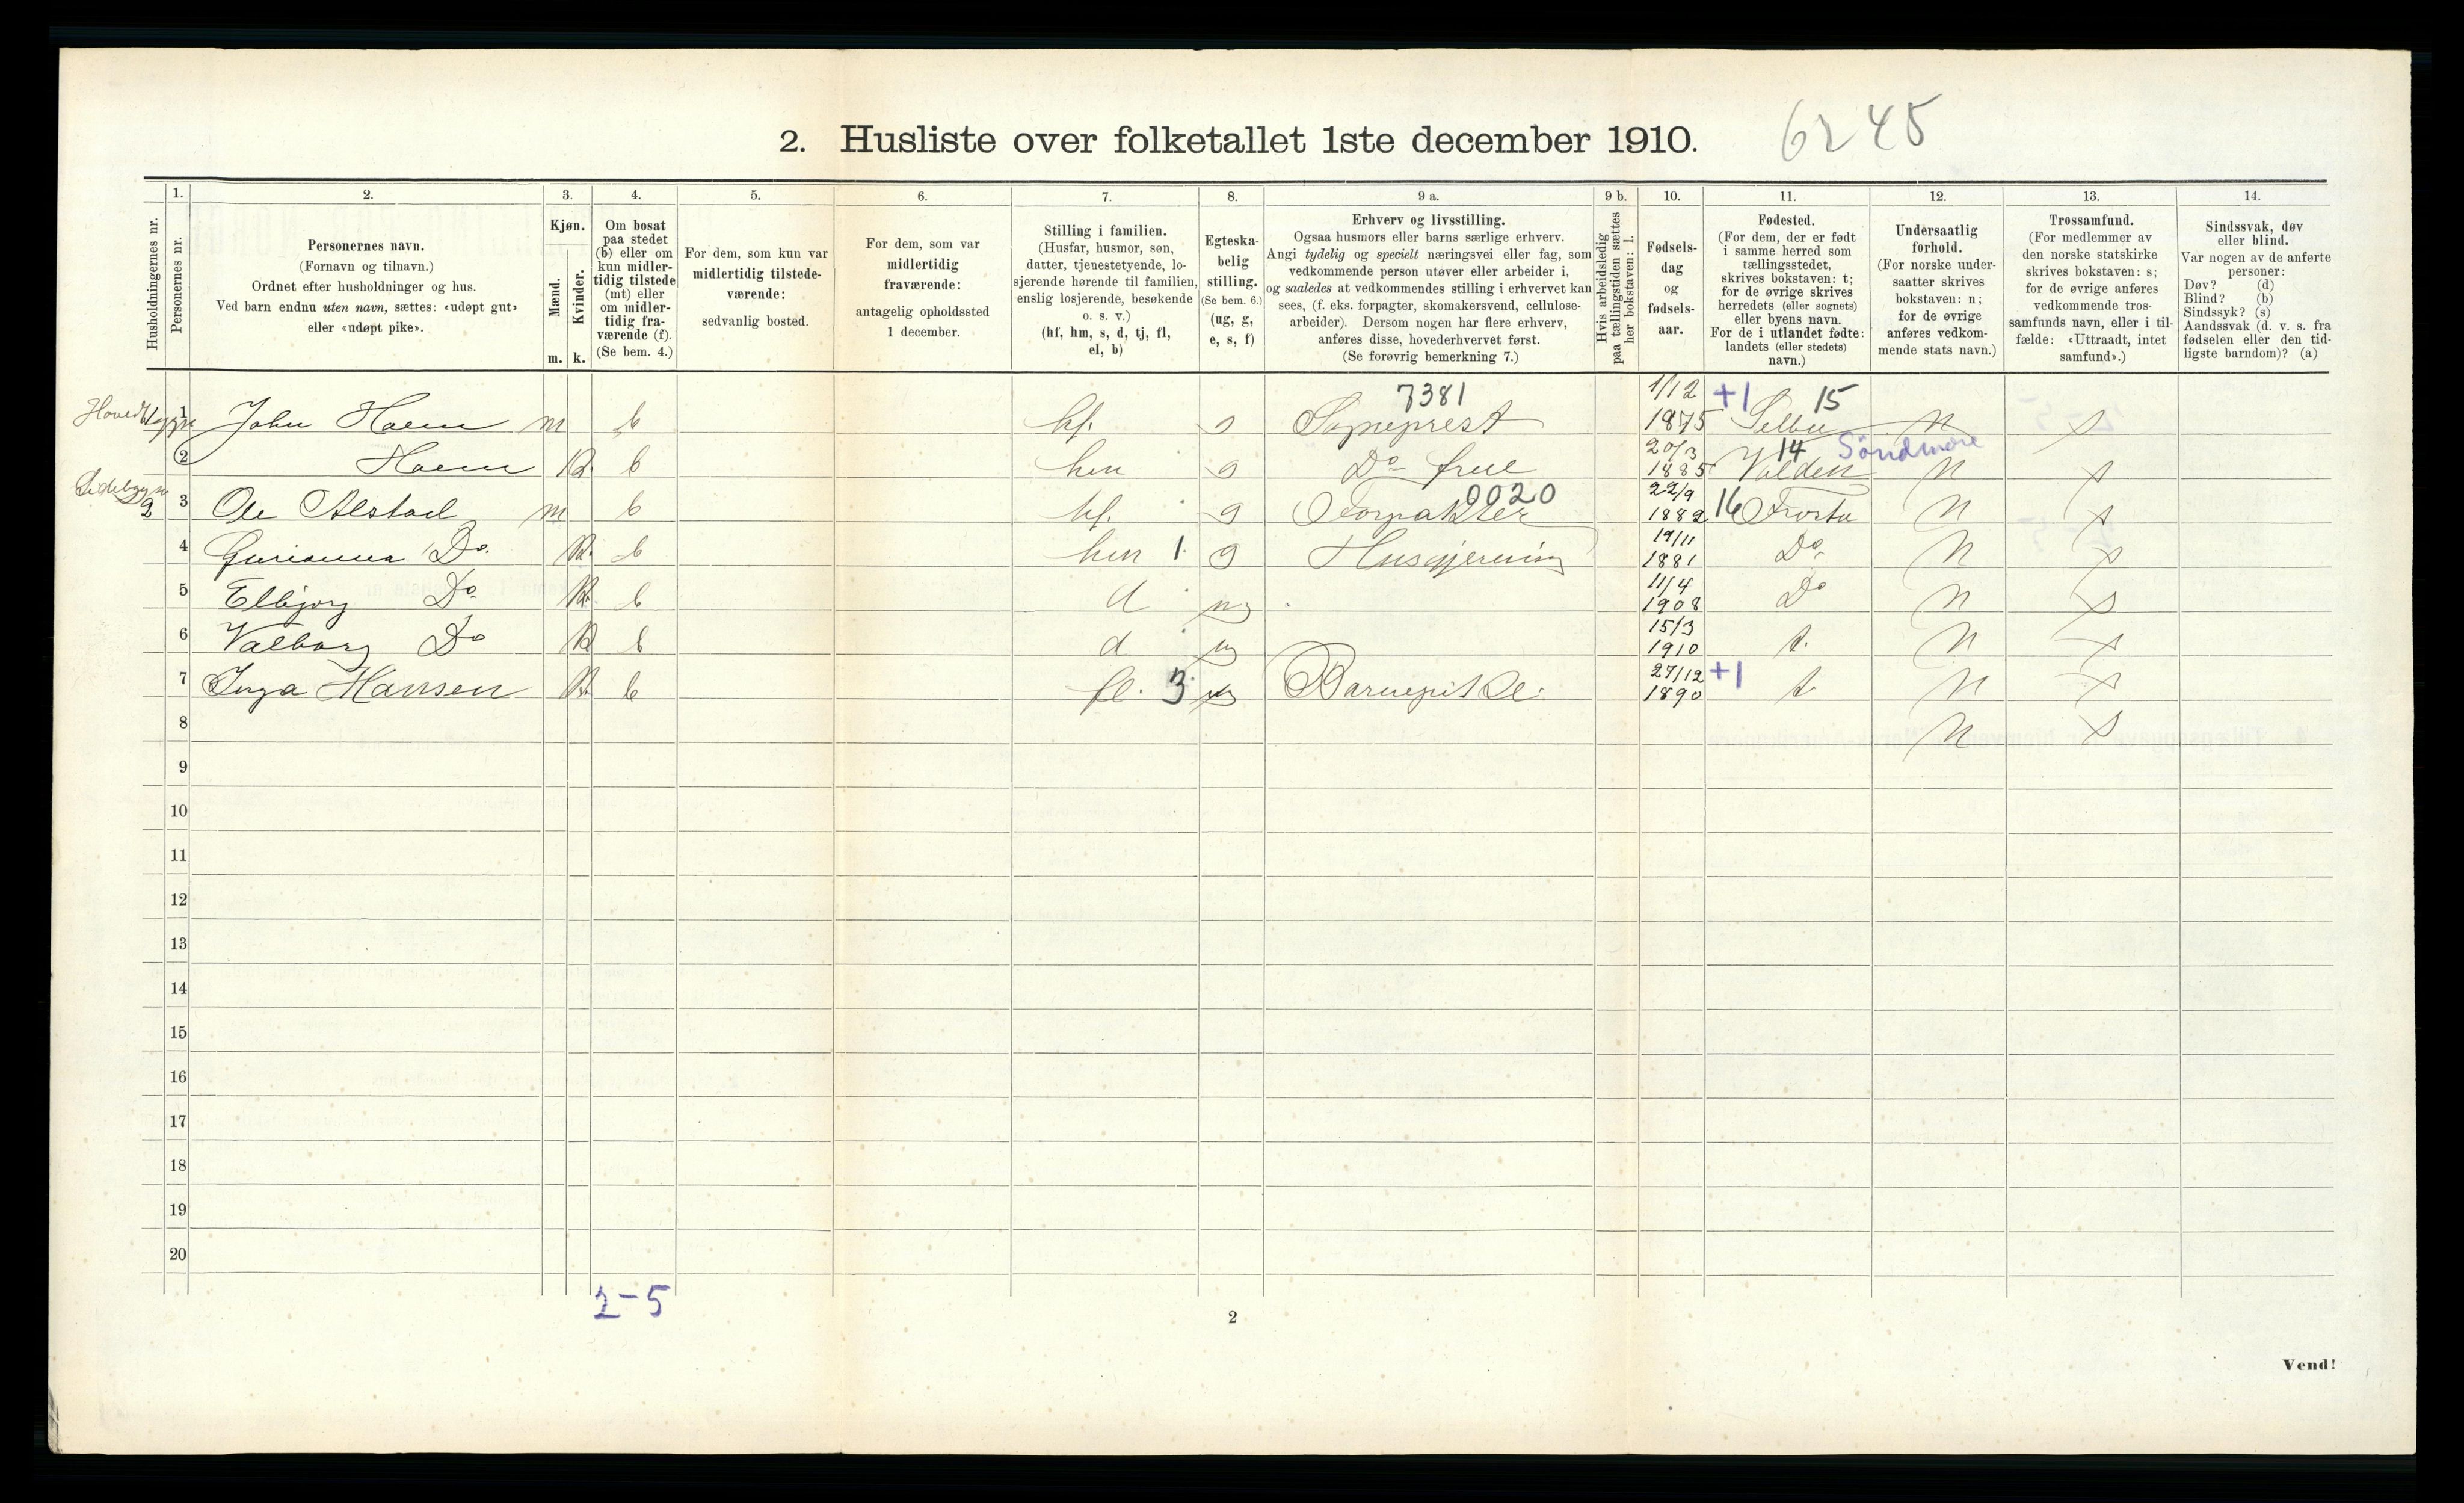 2. Husliste over folketallet 1ste december 1910. 6245
Husholdningernes nr.
1. Personernes nr.
2. Personernes navn.
(Fornavn og tilnavn.)
Ordnet efter husholdninger og hus.
Ved barn endnu uten navn, sættes: «udøpt gut»
eller «udøpt pike».
3. Kjøn.
Mænd. Kvinder.
m. k.
4. Om bosat
paa stedet
(b) eller om
kun midler-
tidig tilstede
(mt) eller
om midler-
tidig fra-
værende (f).
(Se bem. 4.)
5. For dem, som kun var
midlertidig tilstede-
værende:
sedvanlig bosted.
6. For dem, som var
midlertidig
fraværende:
antagelig opholdssted
1 december.
7. Stilling i familien.
(Husfar, husmor, søn,
datter, tjenestetyende, lo-
sjerende hørende til familien,
enslig losjerende, besøkende
o. s. v.)
(hf, hm, s, d, tj, fl,
el, b)
8. Egteska-
belig
stilling.
(Se bem. 6.)
(ug, g,
e, s, f)
9 a. Erhverv og livsstilling.
Ogsaa husmors eller barns særlige erhverv.
Angi tydelig og specielt næringsvei eller fag, som
vedkommende person utøver eller arbeider i,
og saaledes at vedkommendes stilling i erhvervet kan
sees, (f. eks. forpagter, skomakersvend, cellulose-
arbeider). Dersom nogen har flere erhverv,
anføres disse, hovederhvervet først.
(Se forøvrig bemerkning 7.)
9 b. Hvis arbeidsledig
paa tællingstiden sættes
her bokstaven: l.
10. Fødsels-
dag
og
fødsels-
aar.
11. Fødested.
(For dem, der er født
i samme herred som
tællingsstedet,
skrives bokstaven: t;
for de øvrige skrives
herredets (eller sognets)
eller byens navn.
For de i utlandet fødte:
landets (eller stedets)
navn.)
12. Undersaatlig
forhold.
(For norske under-
saatter skrives
bokstaven: n;
for de øvrige
anføres vedkom-
mende stats navn.)
13. Trossamfund.
(For medlemmer av
den norske statskirke
skrives bokstaven: s;
for de øvrige anføres
vedkommende tros-
samfunds navn, eller i til-
fælde: «Uttraadt, intet
samfund».)
14. Sindssvak, døv
eller blind.
Var nogen av de anførte
personer:
Døv? (d)
Blind? (b)
Sindssyk? (s)
Aandssvak (d. v. s. fra
fødselen eller den tid-
ligste barndom)? (a)
1 John Hoem m b hf. g 7381 Sogneprest 1/12 1875 +1 15 Selbu n s
2 Hoem k b hm g Do frue 20/3 1885 14 Volden Söndmøre n s
2 3 Ole Alstad m b hf. g Forpakter 0020 22/9 1882 16 Frosta n s
4 Gurianna Do k b hm 1 g Husgjerning 19/11 1881 Do n s
5 Elbjorg Do k b d ug 11/4 1908 Do n s
6 Valborg Do k b d ug 15/3 1910 t. n s
7 Inga Hansen k b fl. 3 ug Barnepike 27/12 1890 +1 t. n s
8 n s
9
10
11
12
13
14
15
16
17
18
19
20
2-5
2
Vend!